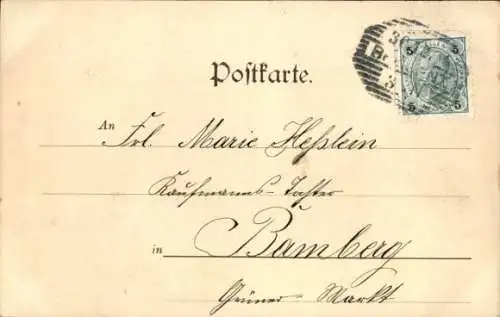 Postkarte.
5 5
5 5
An Frl. Marie Heßlein
Kaufmanns-Tochter
in Bamberg
Grüner Markt